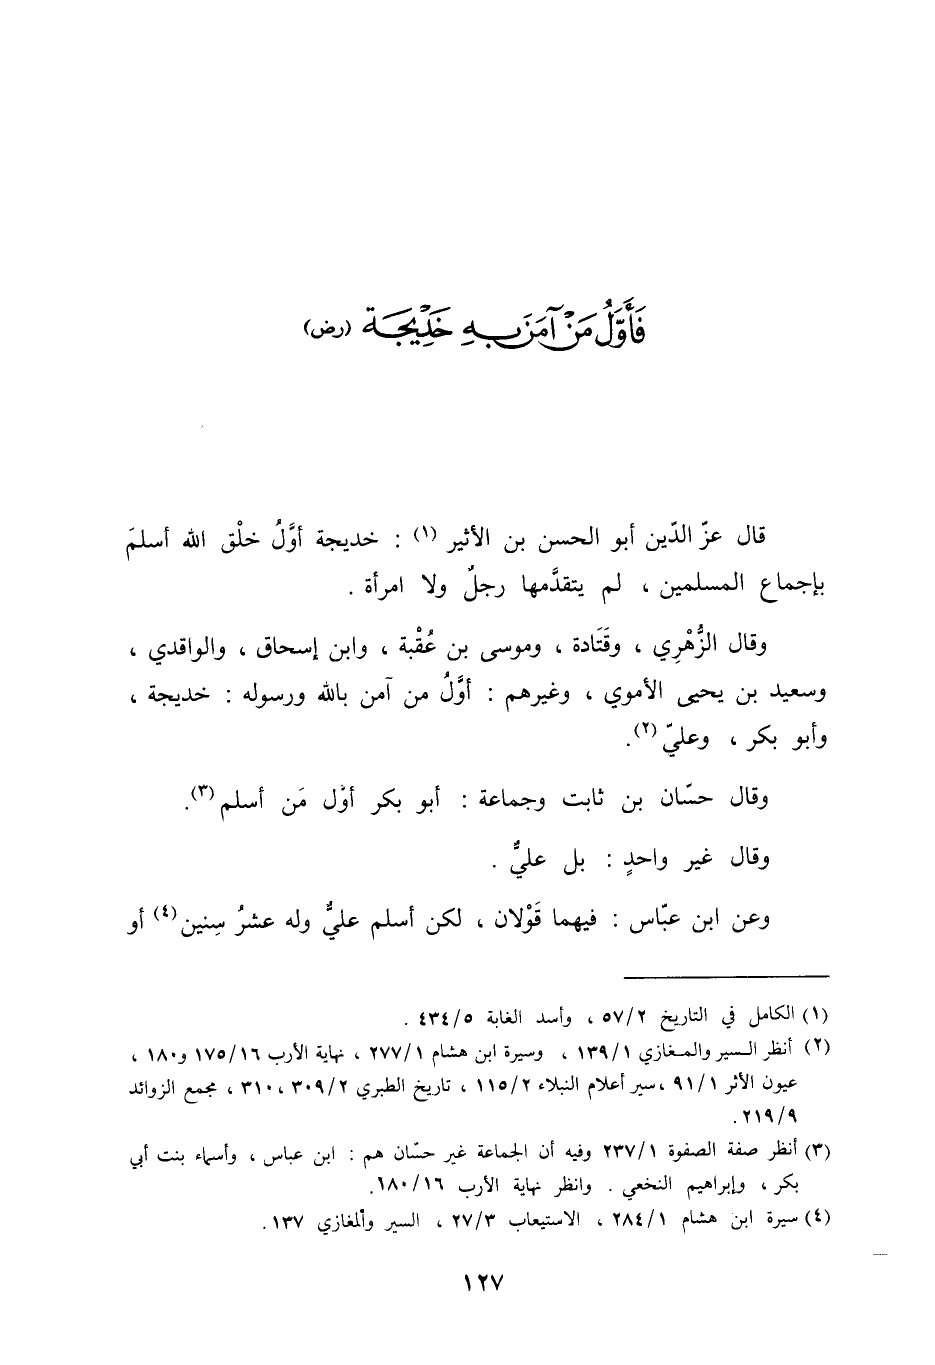 فَأَوَّلُ مَنْ آمَنَ بِهِ خَدِيجَة (رض)
قال عزّ الدّين أبو الحسن بن الأثير (١) : خديجة أوَّلُ خلْق الله أسلمَ
بإجماع المسلمين ، لم يتقدَّمها رجلٌ ولا امرأة .
وقال الزُّهْرِي ، وقَتَادة ، وموسى بن عُقْبة ، وابن إسحاق ، والواقدي ،
وسعيد بن يحيى الأموي ، وغيرهم : أوَّلُ من آمن بالله ورسوله : خديجة ،
وأبو بكر ، وعليّ (٢).
وقال حسّان بن ثابت وجماعة : أبو بكر أوّل مَن أسلم (٣).
وقال غير واحدٍ : بل عليٌّ .
وعن ابن عبّاس : فيهما قَوْلان ، لكن أسلم عليٌّ وله عشرُ سِنين (٤) أو
(١) الكامل في التاريخ ٥٧/٢ ، وأسد الغابة ٤٣٤/٥ .
(٢) أنظر السير والمغازي ١٣٩/١ ، وسيرة ابن هشام ٢٧٧/١ ، نهاية الأرب ١٧٥/١٦ و١٨٠ ،
عيون الأثر ٩١/١ ، سير أعلام النبلاء ١١٥/٢ ، تاريخ الطبري ٣٠٩/٢ ، ٣١٠ ، مجمع الزوائد
٢١٩/٩.
(٣) أنظر صفة الصفوة ٢٣٧/١ وفيه أن الجماعة غير حسّان هم : ابن عباس ، وأسماء بنت أبي
بكر ، وإبراهيم النخعي . وانظر نهاية الأرب ١٨٠/١٦.
(٤) سيرة ابن هشام ٢٨٤/١ ، الاستيعاب ٢٧/٣ ، السير والمغازي ١٣٧.
١٢٧